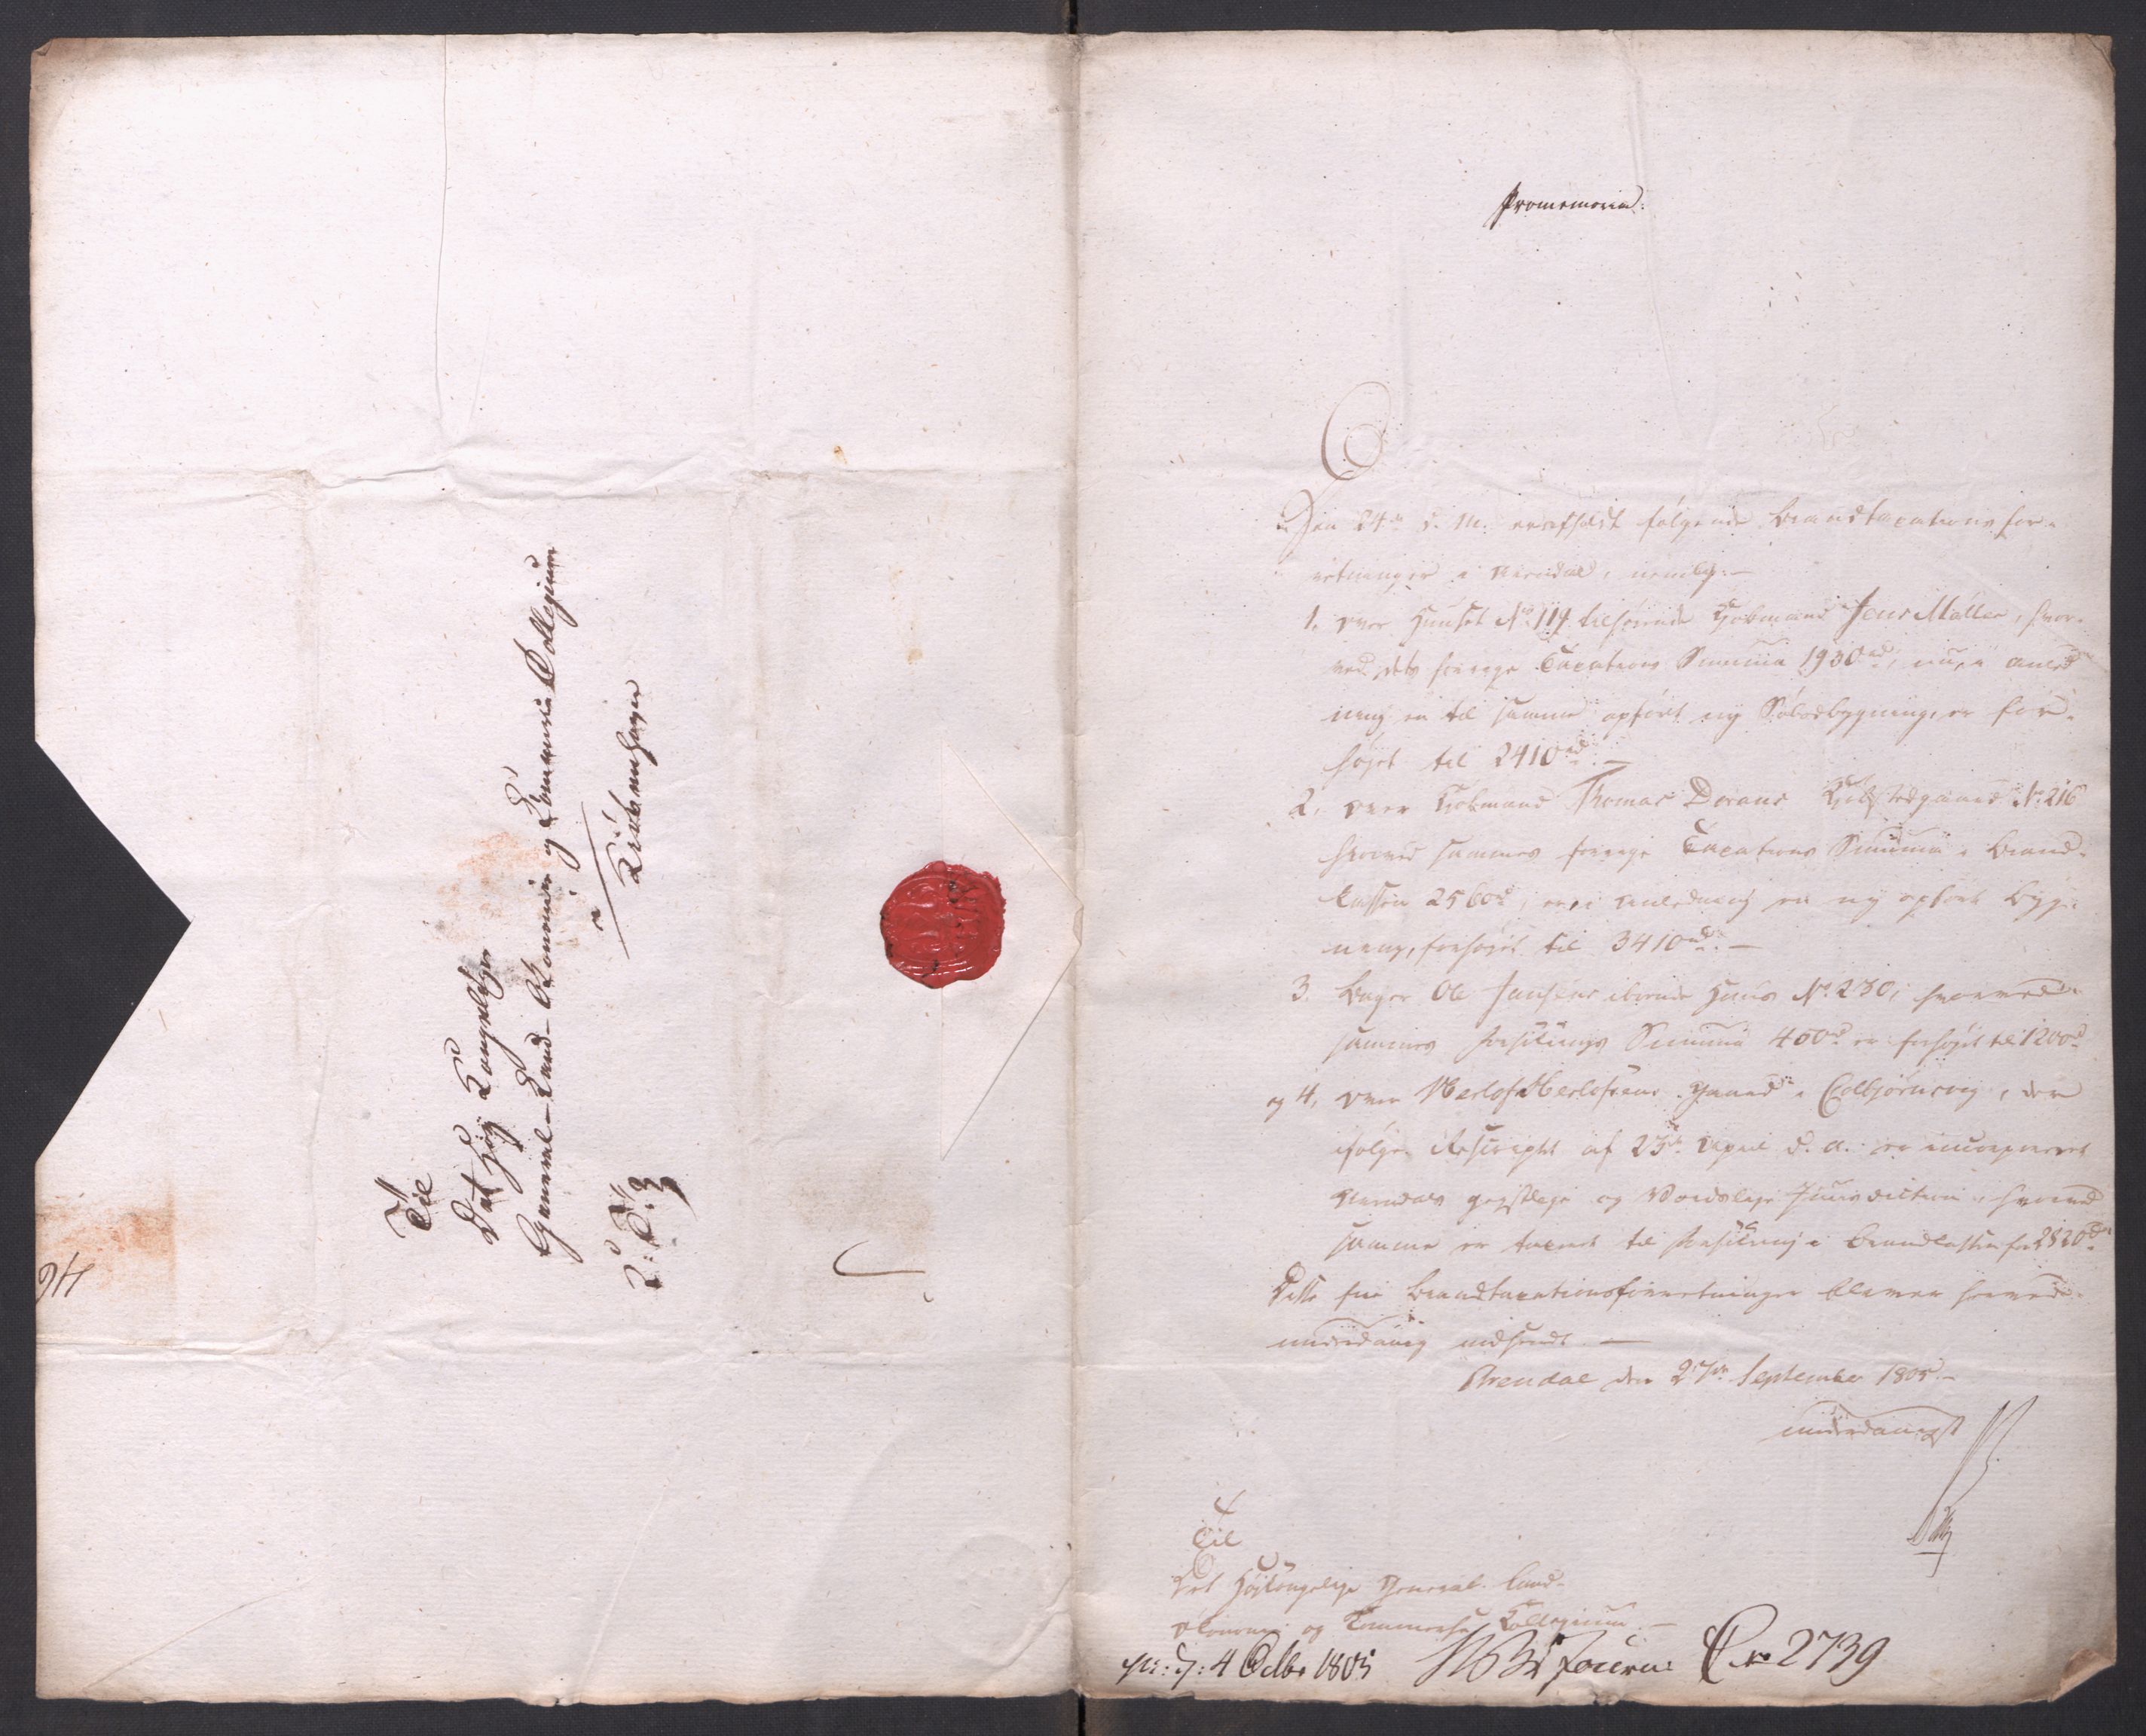 Til
Det Høy Kongelige
General-Land-Oeconomie og Commerce Collegium
i
Kiøbenhavn
46
Promemoria.
Den 24de d. M. er afholdt følgende Brandtaxationsfor-
retninger i Arendal, nemlig:
1. over Huuset No 114 tilhørende Kjøbmand Jens Møller, hvor-
ved dets forrige Taxations Summa 1930rd, nu, i anled
ning en til samme opført ny Søbodbygning, er for-
høyet til 2410rd. —
2, over Kjøbmand Thomas Dorans No. 216
hvorved sammes forrige Taxations Summa i Brand-
kassen 2560rd, er, i anledning en ny opført Byg-
ning, forhøyet til 3410rd. —
3. Bager Ole Jensens iboende Huus No. 230, hvorved
sammes Forsikrings Summa 400rd er forhøyet til 1200rd
og 4, over Herlof Herlofsens Gaard i Colbjørnsvig, der
ifølge Rescript af 23de April d. A. er incorporeret
Arendals geistlige og Verdslige Jurisdiction, hvorved
samme er taxeret til Forsikring i Brandkassen for 2820rd.
Disse fire Brandtaxationsforretninger blever herved
underdanig indsendt. —
Arendal den 27de September 1805. —
underdanigst
Til
Det Høykongelige General Land-
Økonomie og Kommerse Kollegium. —
4 Octbr 1805 Journ: No 2739